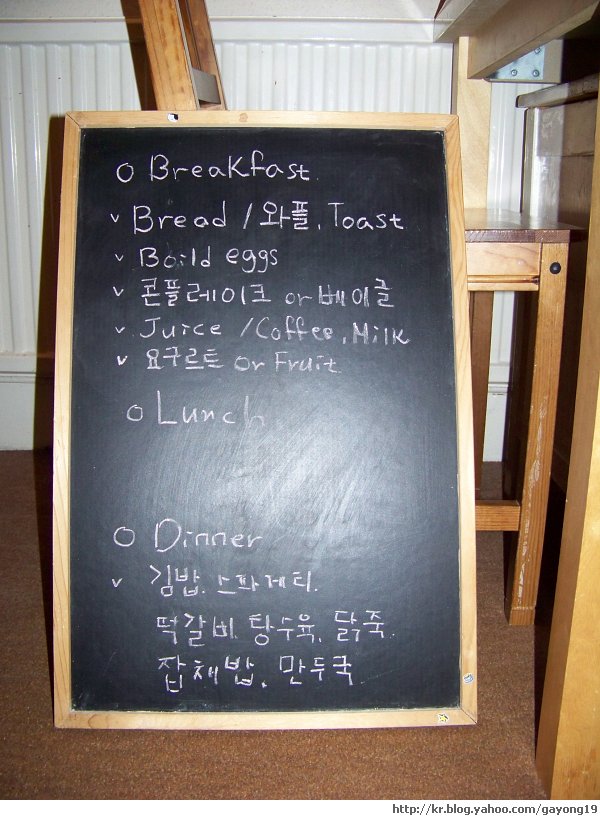 o Breakfast
v Bread / 와플. Toast
v Boild eggs
v 콘플레이크 or 베이글
v Juice / Coffee. Milk
v 요구르트 or Fruit
o Lunch
o Dinner
v 김밥. 스파게티.
떡갈비. 탕수육. 닭죽.
잡채밥. 만두국
http://kr.blog.yahoo.com/gayong19